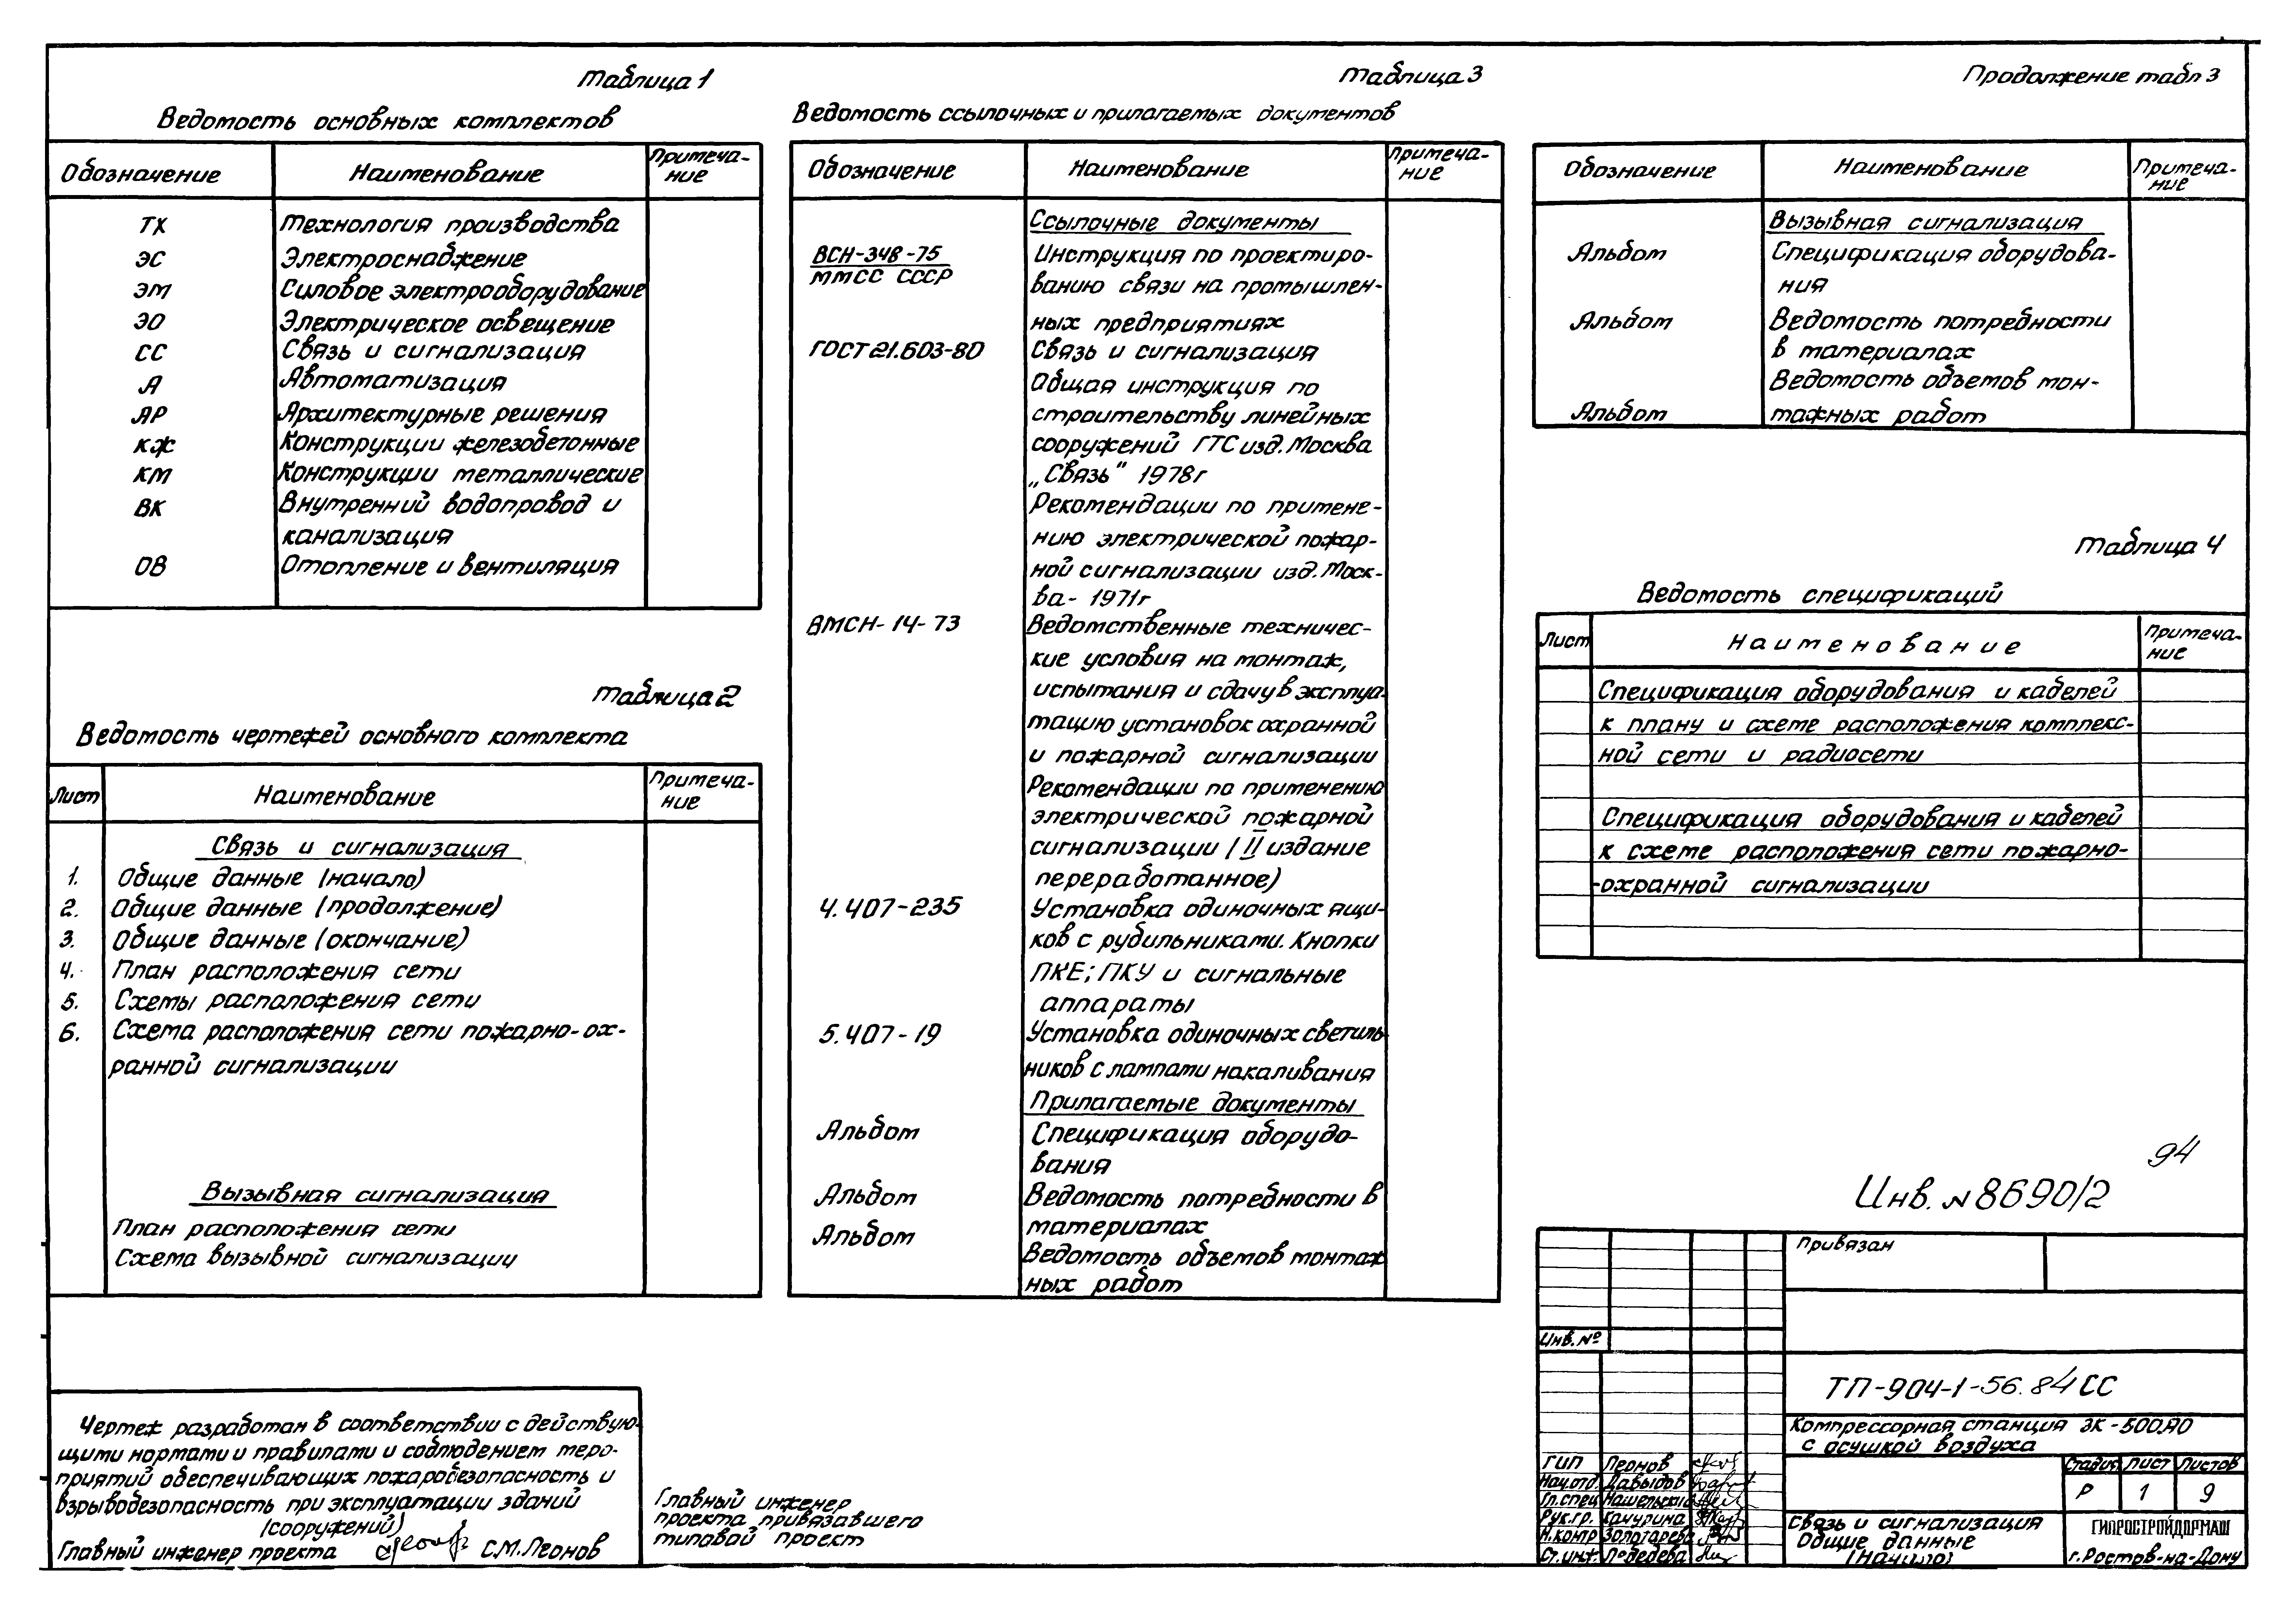 Таблица 1
Ведомость основных комплектов
Обозначение Наименование Примеча-
ние
ТХ Технология производства
ЭС Электроснабжение
ЭМ Силовое электрооборудование
ЭО Электрическое освещение
СС Связь и сигнализация
А Автоматизация
АР Архитектурные решения
КЖ Конструкции железобетонные
КМ Конструкции металлические
ВК Внутренний водопровод и
канализация
ОВ Отопление и вентиляция
Таблица 2
Ведомость чертежей основного комплекта
Лист Наименование Примеча-
ние
Связь и сигнализация
1. Общие данные (начало)
2. Общие данные (продолжение)
3. Общие данные (окончание)
4. План расположения сети
5. Схемы расположения сети
6. Схема расположения сети пожарно-ох-
ранной сигнализации
Вызывная сигнализация
План расположения сети
Схема вызывной сигнализации
Чертеж разработан в соответствии с действую-
щими нормами и правилами и соблюдением меро-
приятий обеспечивающих пожаробезопасность и
взрывобезопасность при эксплуатации зданий
(сооружений)
Главный инженер проекта С.М.Леонов
Главный инженер
проекта привязавшего
типовой проект
Таблица 3
Ведомость ссылочных и прилагаемых документов
Обозначение Наименование Примеча-
ние
Ссылочные документы
ВСН-348-75 Инструкция по проектиро-
ММСС СССР ванию связи на промышлен-
ных предприятиях
ГОСТ 21.603-80 Связь и сигнализация
Общая инструкция по
строительству линейных
сооружений ГТС изд. Москва
„Связь" 1978г
Рекомендации по примене-
нию электрической пожар-
ной сигнализации изд. Моск-
ва - 1971г
ВМСН-14-73 Ведомственные техничес-
кие условия на монтаж,
испытания и сдачу в эксплуа-
тацию установок охранной
и пожарной сигнализации
Рекомендации по применению
электрической пожарной
сигнализации (II издание
переработанное)
4.407-235 Установка одиночных ящи-
ков с рубильниками. Кнопки
ПКЕ; ПКУ и сигнальные
аппараты
5.407-19 Установка одиночных светиль-
ников с лампами накаливания
Прилагаемые документы
Альбом Спецификация оборудо-
вания
Альбом Ведомость потребности в
материалах
Альбом Ведомость объемов монтаж
ных работ
Продолжение табл 3
Обозначение Наименование Примеча-
ние
Вызывная сигнализация
Альбом Спецификация оборудова-
ния
Альбом Ведомость потребности
в материалах
Ведомость объемов мон-
Альбом тажных работ
Таблица 4
Ведомость спецификаций
Лист Наименование Примеча-
ние
Спецификация оборудования и кабелей
к плану и схеме расположения комплекс-
ной сети и радиосети
Спецификация оборудования и кабелей
к схеме расположения сети пожарно-
-охранной сигнализации
94
Инв. N 8690/2
Привязан
Инв. №
ТП-904-1-56.84 СС
Компрессорная станция 3К-500А0
с осушкой воздуха
ГИП Леонов
Нач.отд. Давыдов
Гл.спец
Рук.гр. Качурина
Н.контр Золотарева
Ст.инж. Лебедева
Стадия Лист Листов
Р 1 9
Связь и сигнализация
Общие данные
(начало)
ГИПРОСТРОЙДОРМАШ
г. Ростов-на-Дону